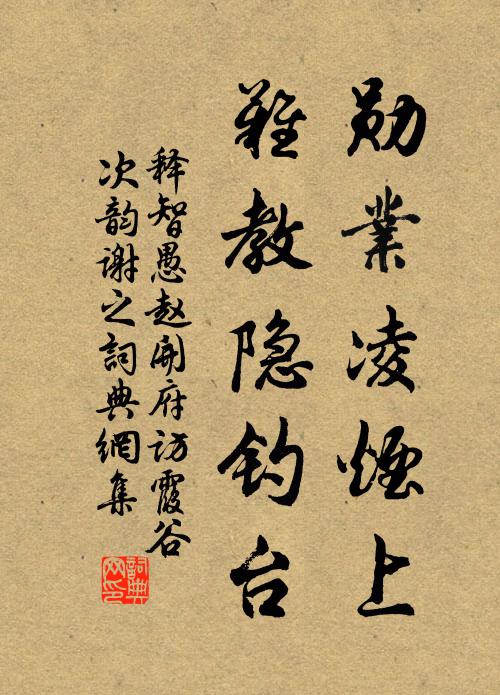 勋業凌煙上
難教隐钓台
释智愚赵開府访霞谷
次韵谢之詞典網集
詞典网印